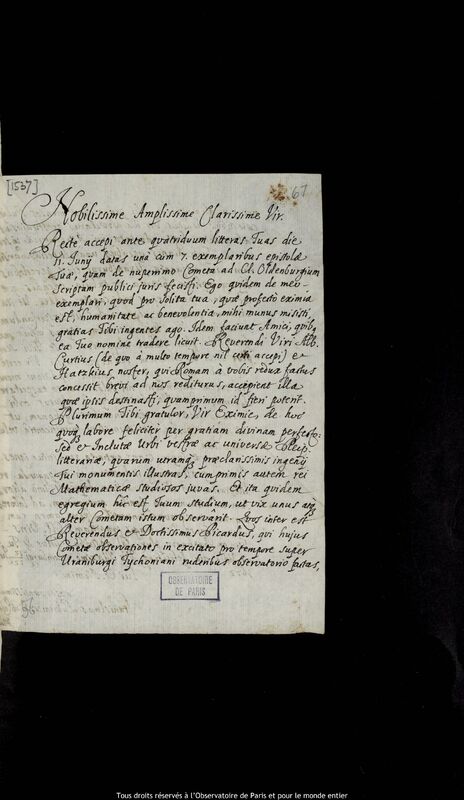 [1537]
67
Nobilissime Amplissime Clarissime Vir.
Recte accepi ante quatriduum litteras Tuas die
11. Junij datas una cum 7. exemplaribus epistolæ
Tuæ, quam de nuperrimo Cometa ad Cl. Oldenburgium
scriptam publici juris fecisti. Ego quidem de meo
exemplari, quod pro solita tua, quæ profecto eximia
est, humanitate ac benevolentia, mihi munus misisti,
gratias Tibi ingentes ago. Idem faciunt Amici, quibꝫ
ea Tuo nomine tradere licuit. Reverendi Viri Alb.
Curtius (de quo à multo tempore nil certi accepi) et
Hatzkius noster, qui Romam à vobis redux factus
concessit brevi ad nos rediturus, accipient illa
quæ ipsis destinasti, quamprimum id fieri poterit.
Plurimum Tibi gratulor, Vir Eximie, de hoc
quoqꝫ labore feliciter per gratiam divinam perfecto:
sed et Inclutæ Urbi vestræ ac universæ Reip.
litterariæ, quarum utramqꝫ præclarissimis ingenij
Tui monumentis illustras, cumprimis autem rei
Mathematicæ studiosos juvas. Et ita quidem
egregium hîc est Tuum studium, ut vix unus atqꝫ
alter Cometam istum observarit. Quos inter est
Reverendus et Doctissimus Picardus, qui hujus
Cometæ observationes in excitato pro tempore super
Uraniburgi Tychoniani ruderibus observatorio factas,
OBSERVATOIRE
DE PARIS
96
Tous droits réservés à l'Observatoire de Paris et pour le monde entier